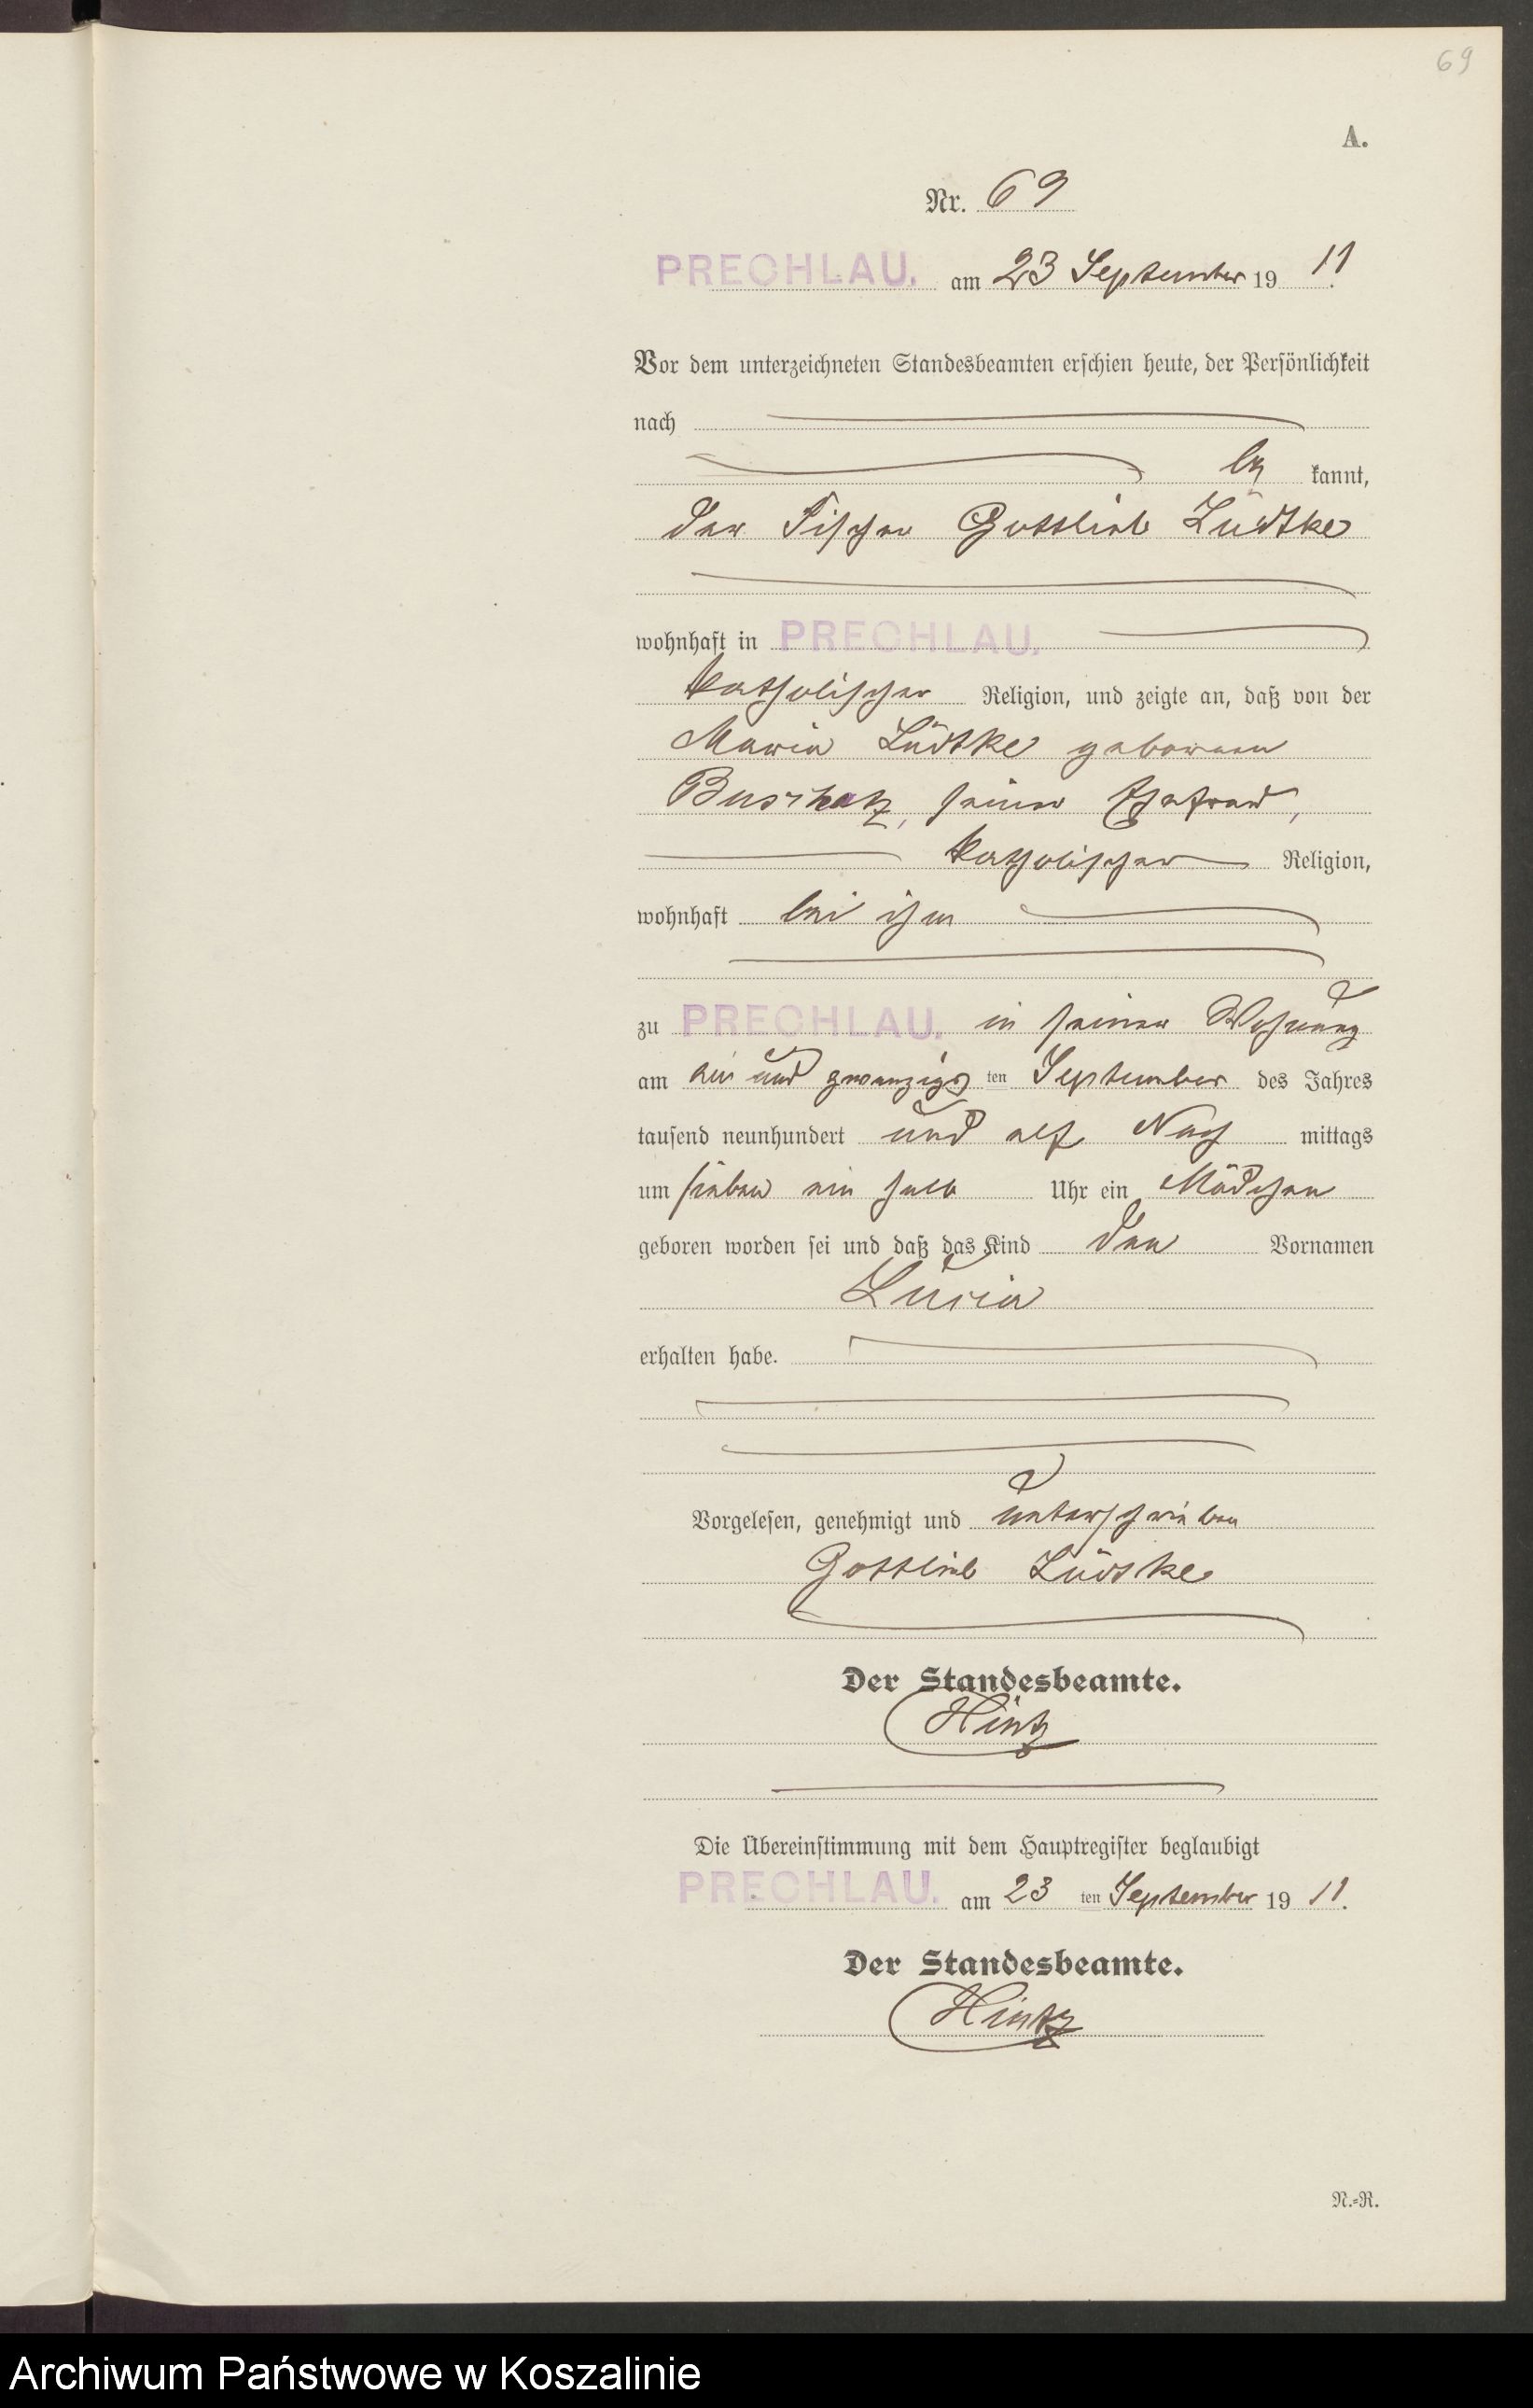 69
A.
Nr. 69
PRECHLAU. am 23 September 19 11.
Vor dem unterzeichneten Standesbeamten erschien heute, der Persönlichkeit
nach
be kannt,
der Fischer Gottlieb Lüdtke
wohnhaft in PRECHLAU.
katholischer Religion, und zeigte an, daß von der
Maria Lüdtke geborenen
seiner Ehefrau,
katholischer Religion,
wohnhaft bei ihm
zu PRECHLAU. in seiner Wohnung
am ein und zwanzigs ten September des Jahres
tausend neunhundert und elf Nach mittags
um sieben ein halb Uhr ein Mädchen
geboren worden sei und daß das Kind den Vornamen
Lucia
erhalten habe.
Vorgelesen, genehmigt und unterschrieben
Gottlieb Lüdtke
Der Standesbeamte.
Hintz
Die Übereinstimmung mit dem Hauptregister beglaubigt
PRECHLAU. am 23 ten September 19 11.
Der Standesbeamte.
Hintz
N.=R.
Archiwum Państwowe w Koszalinie